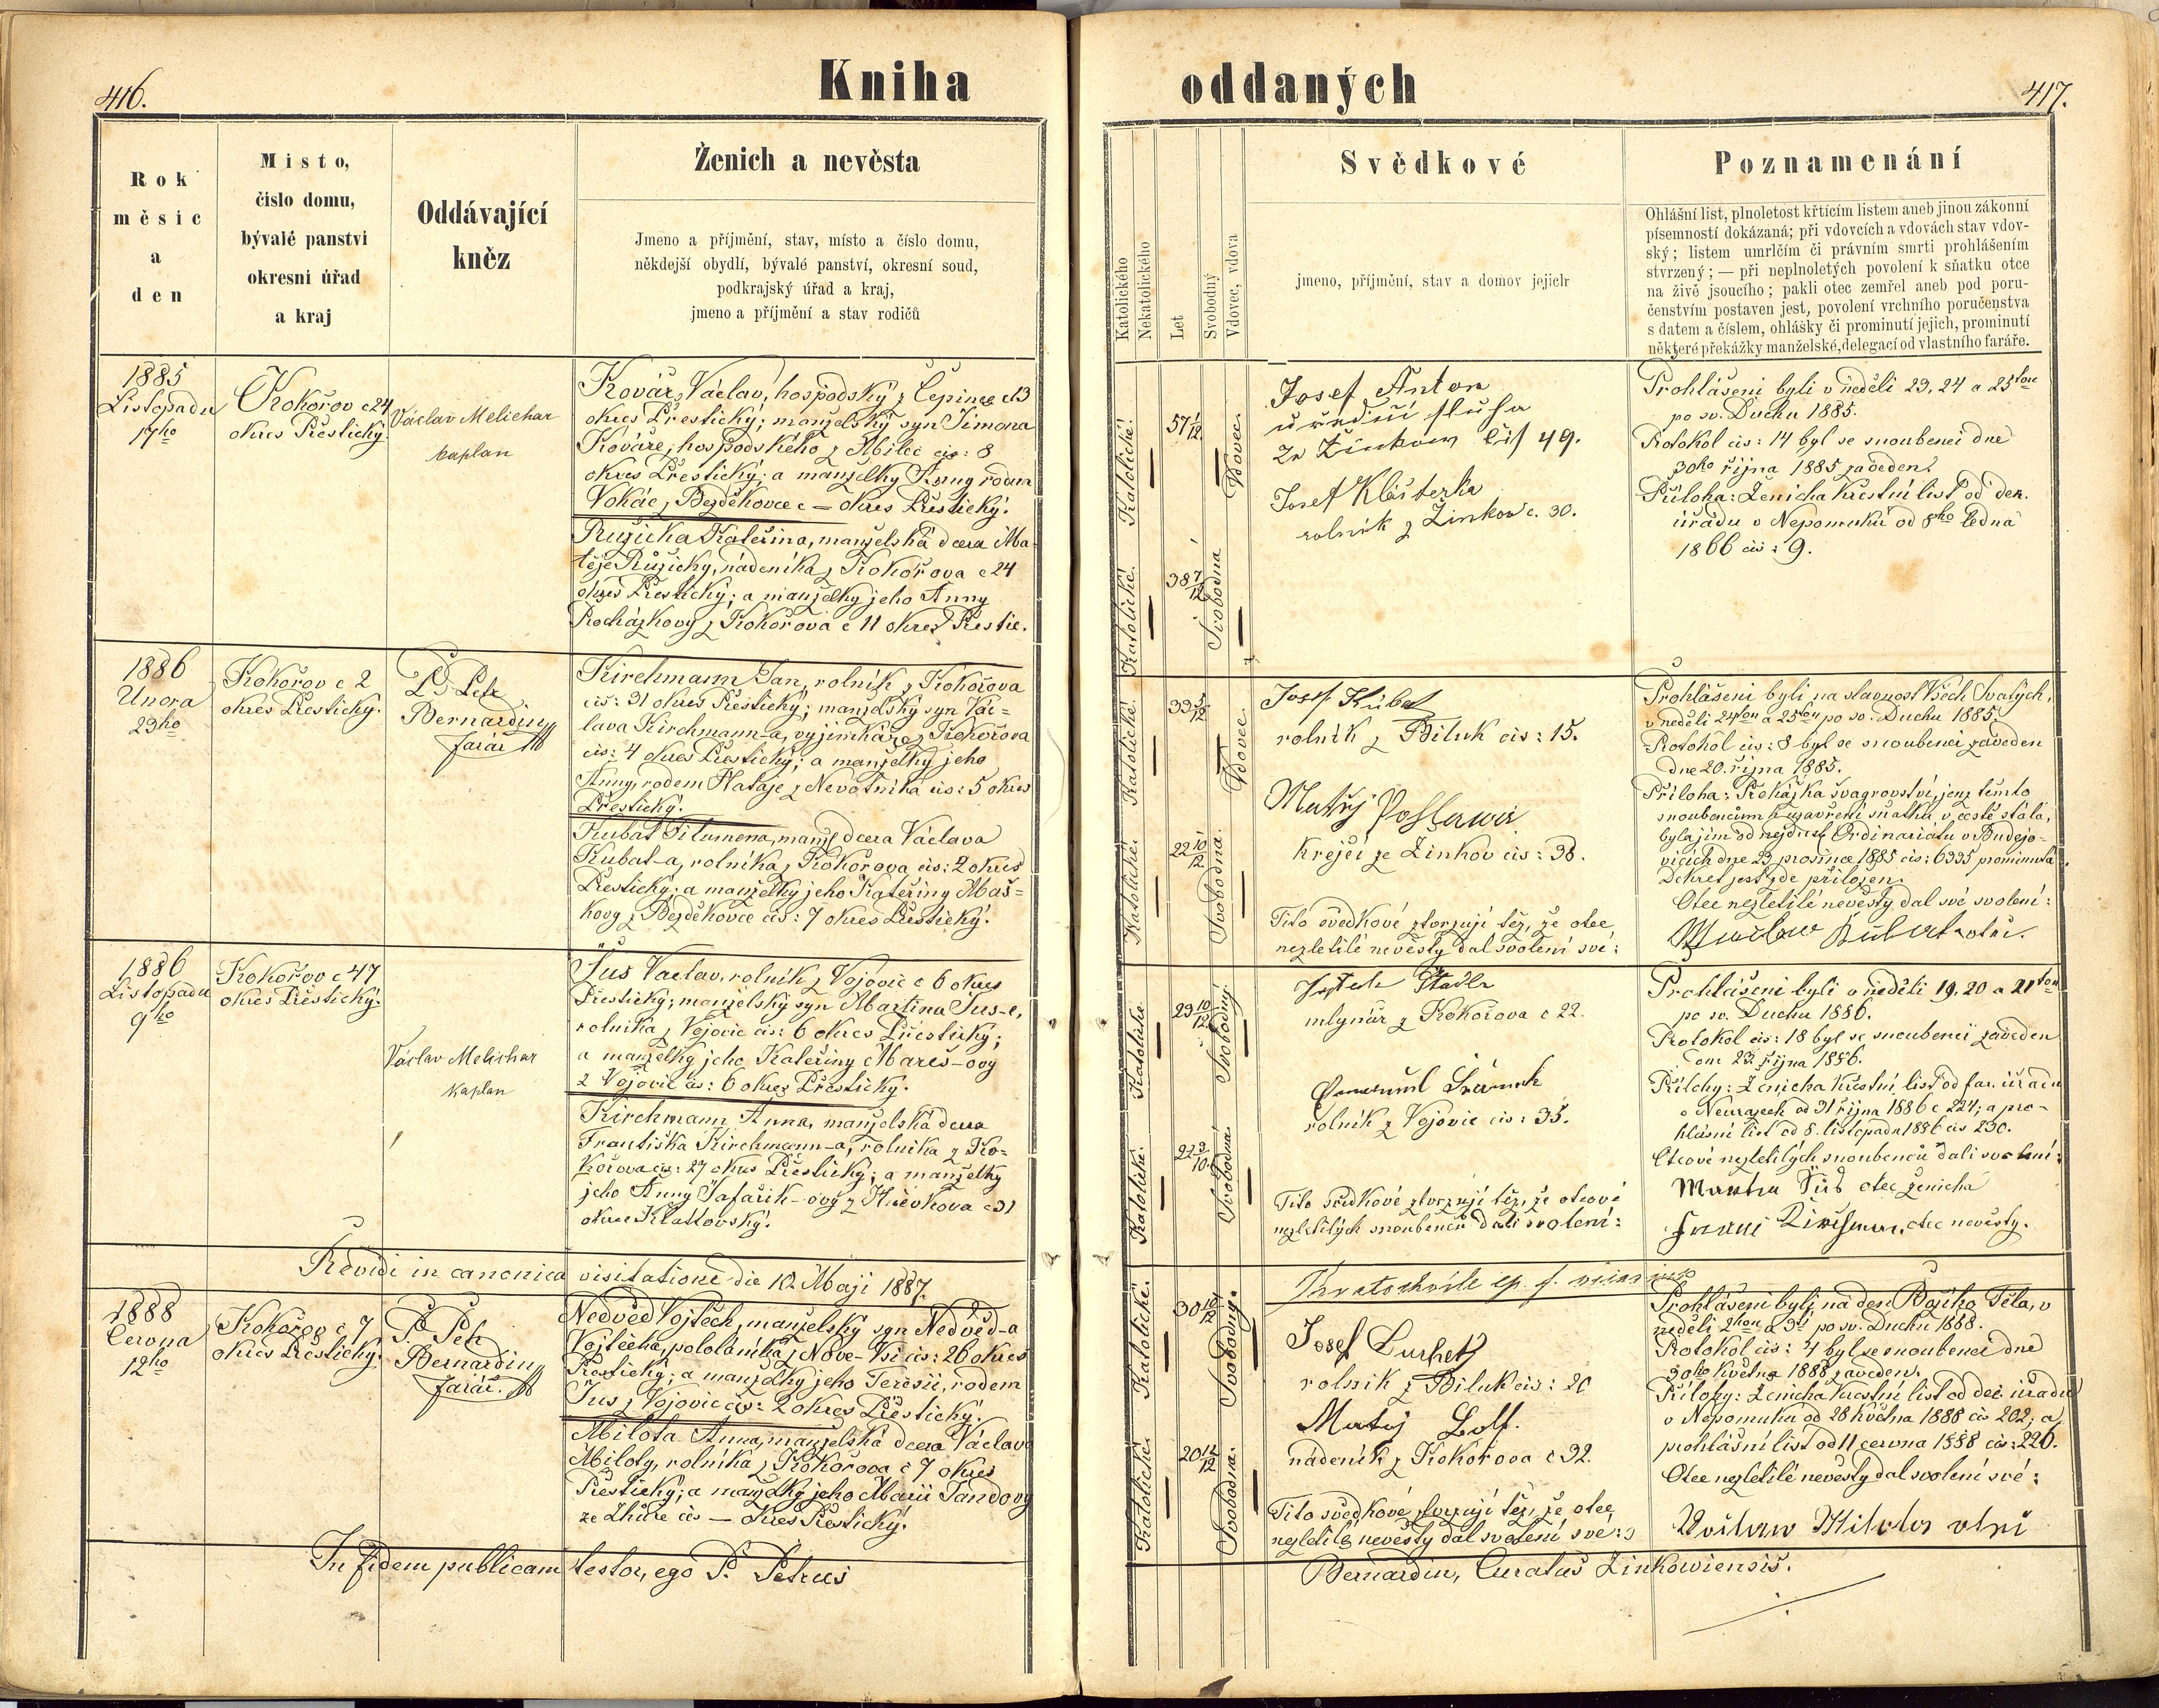 416.
Kniha
oddaných
417.
Rok
měsíc
a
den
Místo,
číslo domu,
bývalé panství
okresní úřad
a kraj
Oddávající
kněz
Ženich a nevěsta
Jmeno a příjmění, stav, místo a číslo domu,
někdejší obydlí, bývalé panství, okresní soud,
podkrajský úřad a kraj,
jmeno a příjmění a stav rodičů
Katolického
Nekatolického
Let
Svobodný
Vdovec, vdova
Svědkové
jmeno, příjmění, stav a domov jejich
Poznamenání
Ohlášní list, plnoletost křtícím listem aneb jinou zákonní
písemností dokázaná; při vdovcích a vdovách stav vdov-
ský; listem umrlčím či právním smrti prohlášením
stvrzený; — při neplnoletých povolení k sňatku otce
na živě jsoucího; pakli otec zemřel aneb pod poru-
čenstvím postaven jest, povolení vrchního poručenstva
s datem a číslem, ohlášky či prominutí jejich, prominutí
některé překážky manželské, delegací od vlastního faráře.
1885
Listopadu
17ho
Kokořov c 24
okres Přestický.
Václav Melichar
kaplan
Kovář Václav, hospodský z Čepinec c 13
okres Přestický; manželský syn Šimona
Kováře, hospodského z Milec čís: 8
okres Přestický; a manželky Anny rodem
Vokáč z Bezděkovce c — okres Přestický.
Růžička Kateřina, manželská dcera Ma-
těje Růžičky, nádeníka z Kokořova c 24
okres Přestický; a manželky jeho Anny
Procházkovy z Kokořova c 11 okres Přestic.
Katolické.
57/12
Vdovec.
Katolické.
38 7/12
Svobodná
Josef Anton
úřední sluha
ze Žinkow čís 49.
Josef Klišterka
rolník z Žinkov c. 30.
Prohlášeni byli v neděli 23, 24 a 25tou
po sv. Duchu 1885.
Protokol čís: 14 byl se snoubenci dne
30ho října 1885 zaveden.
Příloha: Ženicha křestní list od děk.
úřadu v Nepomuku od 8ho ledna
1866 čís: 9.
1886
Února
23ho
Kokořov c 2
okres Přestický.
P. Petr
Bernardin
farář
Kirchmann Jan, rolník z Kokořova
čís: 31 okres Přestický; manželský syn Vác-
lava Kirchmann-a, výjimkáře z Kokořova
čís: 4 okres Přestický; a manželky jeho
Anny, rodem Hataje z Nevotníka čís: 5 okres
Přestický.
Kubat Filumena, manž dcera Václava
Kubat-a, rolníka z Kokořova čís: 2 okres
Přestický; a manželky jeho Kateřiny Maš-
kovy z Bezděkovce čís: 7 okres Přestický.
Katolické.
33 5/12
Vdovec
Katolické.
22 10/12
Svobodná.
Josef Kubat
rolník z Biluk čís: 15.
Matěj
krejčí ze Žinkov čís: 38.
Tito svědkové stvrzují též, že otec
nezletilé nevěsty dal svolení své:
Prohlášeni byli na slavnost Všech Svatých,
v neděli 24tou a 25tou po sv. Duchu 1885.
Protokol čís: 8 byl se snoubenci zaveden
dne 20. října 1885.
Příloha: Překážka švagrovství, jenž těmto
snoubencům k uzavření sňatku v cestě stála,
byla jim od nejdůst. Ordinariátu v Budějo-
vicích dne 23 prosince 1885 čís: 6335 prominuta.
Dekret jest zde přiložen.
Otec nezletilé nevěsty dal své svolení:
Waclaw Kubat otec.
1886
Listopadu
9ho
Kokořov c 47
okres Přestický.
Václav Melichar
kaplan
Šus Vaclav, rolník z Vojovic c 6 okres
Přestický; manželský syn Martina Šus-e,
rolníka z Vojovic čís: 6 okres Přestický;
a manželky jeho Kateřiny Mareš-ovy
z Vojovic čís: 6 okres Přestický.
Kirchmann Anna, manželská dcera
Františka Kirchmann-a, rolníka z Ko-
kořova čís: 27 okres Přestický; a manželky
jeho Anny Šafařík-ovy z c 31
okres Klattovský.
Katolické
23 10/12
Svobodný.
Katolické.
22 3/10
Svobodná.
Vojtěch Štádler
mlynář z Kokořova c 22.
rolník z Vojovic čís: 35.
Tito svědkové stvrzují též, že otcové
nezletilých snoubenců dali svolení:
Prohlášeni byli v neděli 19, 20 a 21tou
po sv. Duchu 1886.
Protokol čís: 18 byl se snoubenci zaveden
dne 23. října 1886.
Přílohy: Ženicha křestní list od far. úřadu
v Neurazech od 31 října 1886 c 224; a pro-
hlásní list od 8. listopadu 1886 čís 230.
Otcové nezletilých snoubenců dali svolení:
Martin Šus otec ženicha
Kirchman, otec nevěsty.
Revidi in canonica visitatione die 10. Maji 1887.
1888
Června
12ho
Kokořov c 7
okres Přestický.
P. Petr
Bernardin
farář.
Nedvěd Vojtěch, manželský syn Nedvěd-a
Vojtěcha, pololáníka z Nové-Vsi čís: 26 okres
Přestický; a manželky jeho Teresii, rodem
Šus z Vojovic čís: 2 okres Přestický.
Milota Anna, manželská dcera Václava
Miloty, rolníka z Kokořova c 7 okres
Přestický; a manželky jeho Marii Tandovy
ze Lhůře čís — okres Přestický.
Katolické.
30 10/12
Svobodný.
Katolické.
20 11/12
Svobodná.
Josef
rolník z Biluk čís: 20
Matěj
nádeník z Kokořova c 32.
Tito svědkové stvrzují též, že otec
nezletilé nevěsty dal svolení své:
Prohlášeni byli na den Božího Těla, v
neděli 2hou a 3tí po sv. Duchu 1888.
Protokol čís: 4 byl se snoubenci dne
30ho května 1888 zaveden.
Přílohy: Ženicha křestní list od děk. úřadu
v Nepomuku od 28 května 1888 čís 202, a
prohlášní list od 11 června 1888 čís: 226.
Otec nezletilé nevěsty dal svolení své:
Milota otec
In fidem publicam testor, ego P. Petrus
Bernardin, Curatus Zinkowiensis.